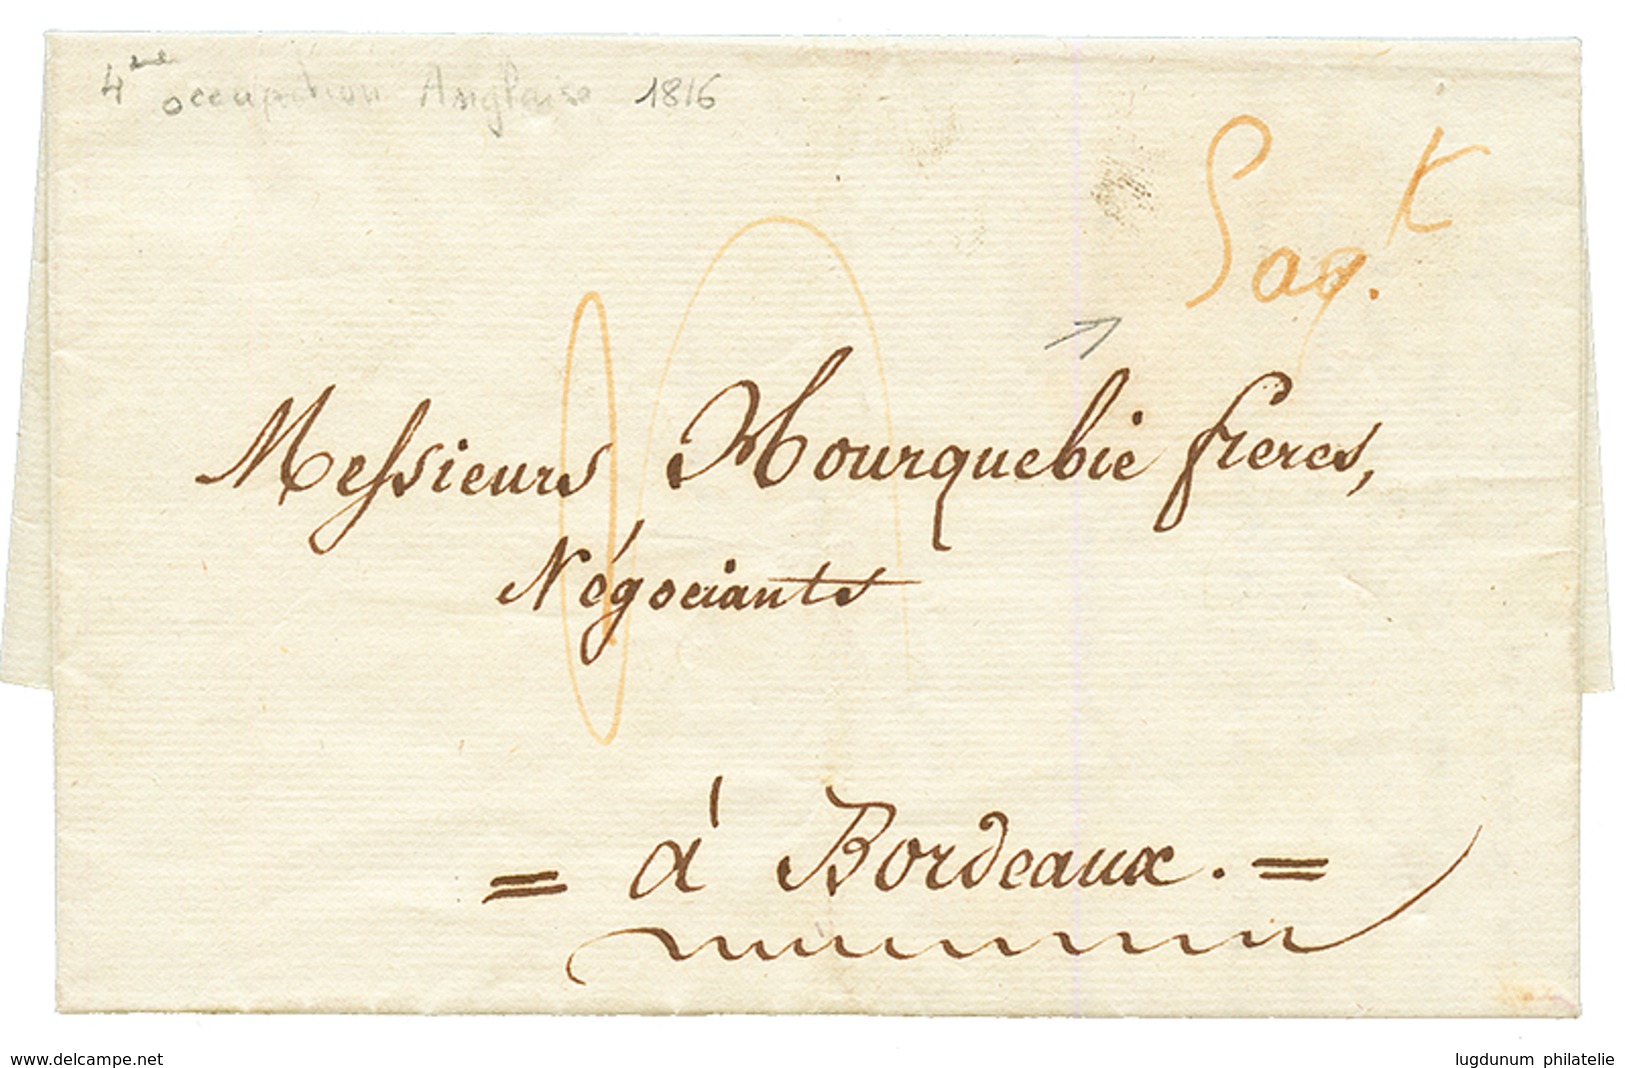 4eme occupation Anglaise 1816
Paq.t
Messieurs Hourquebie freres,
Négociants
= à Bordeaux. =
www.delcampe.net
lugdunum philatelie